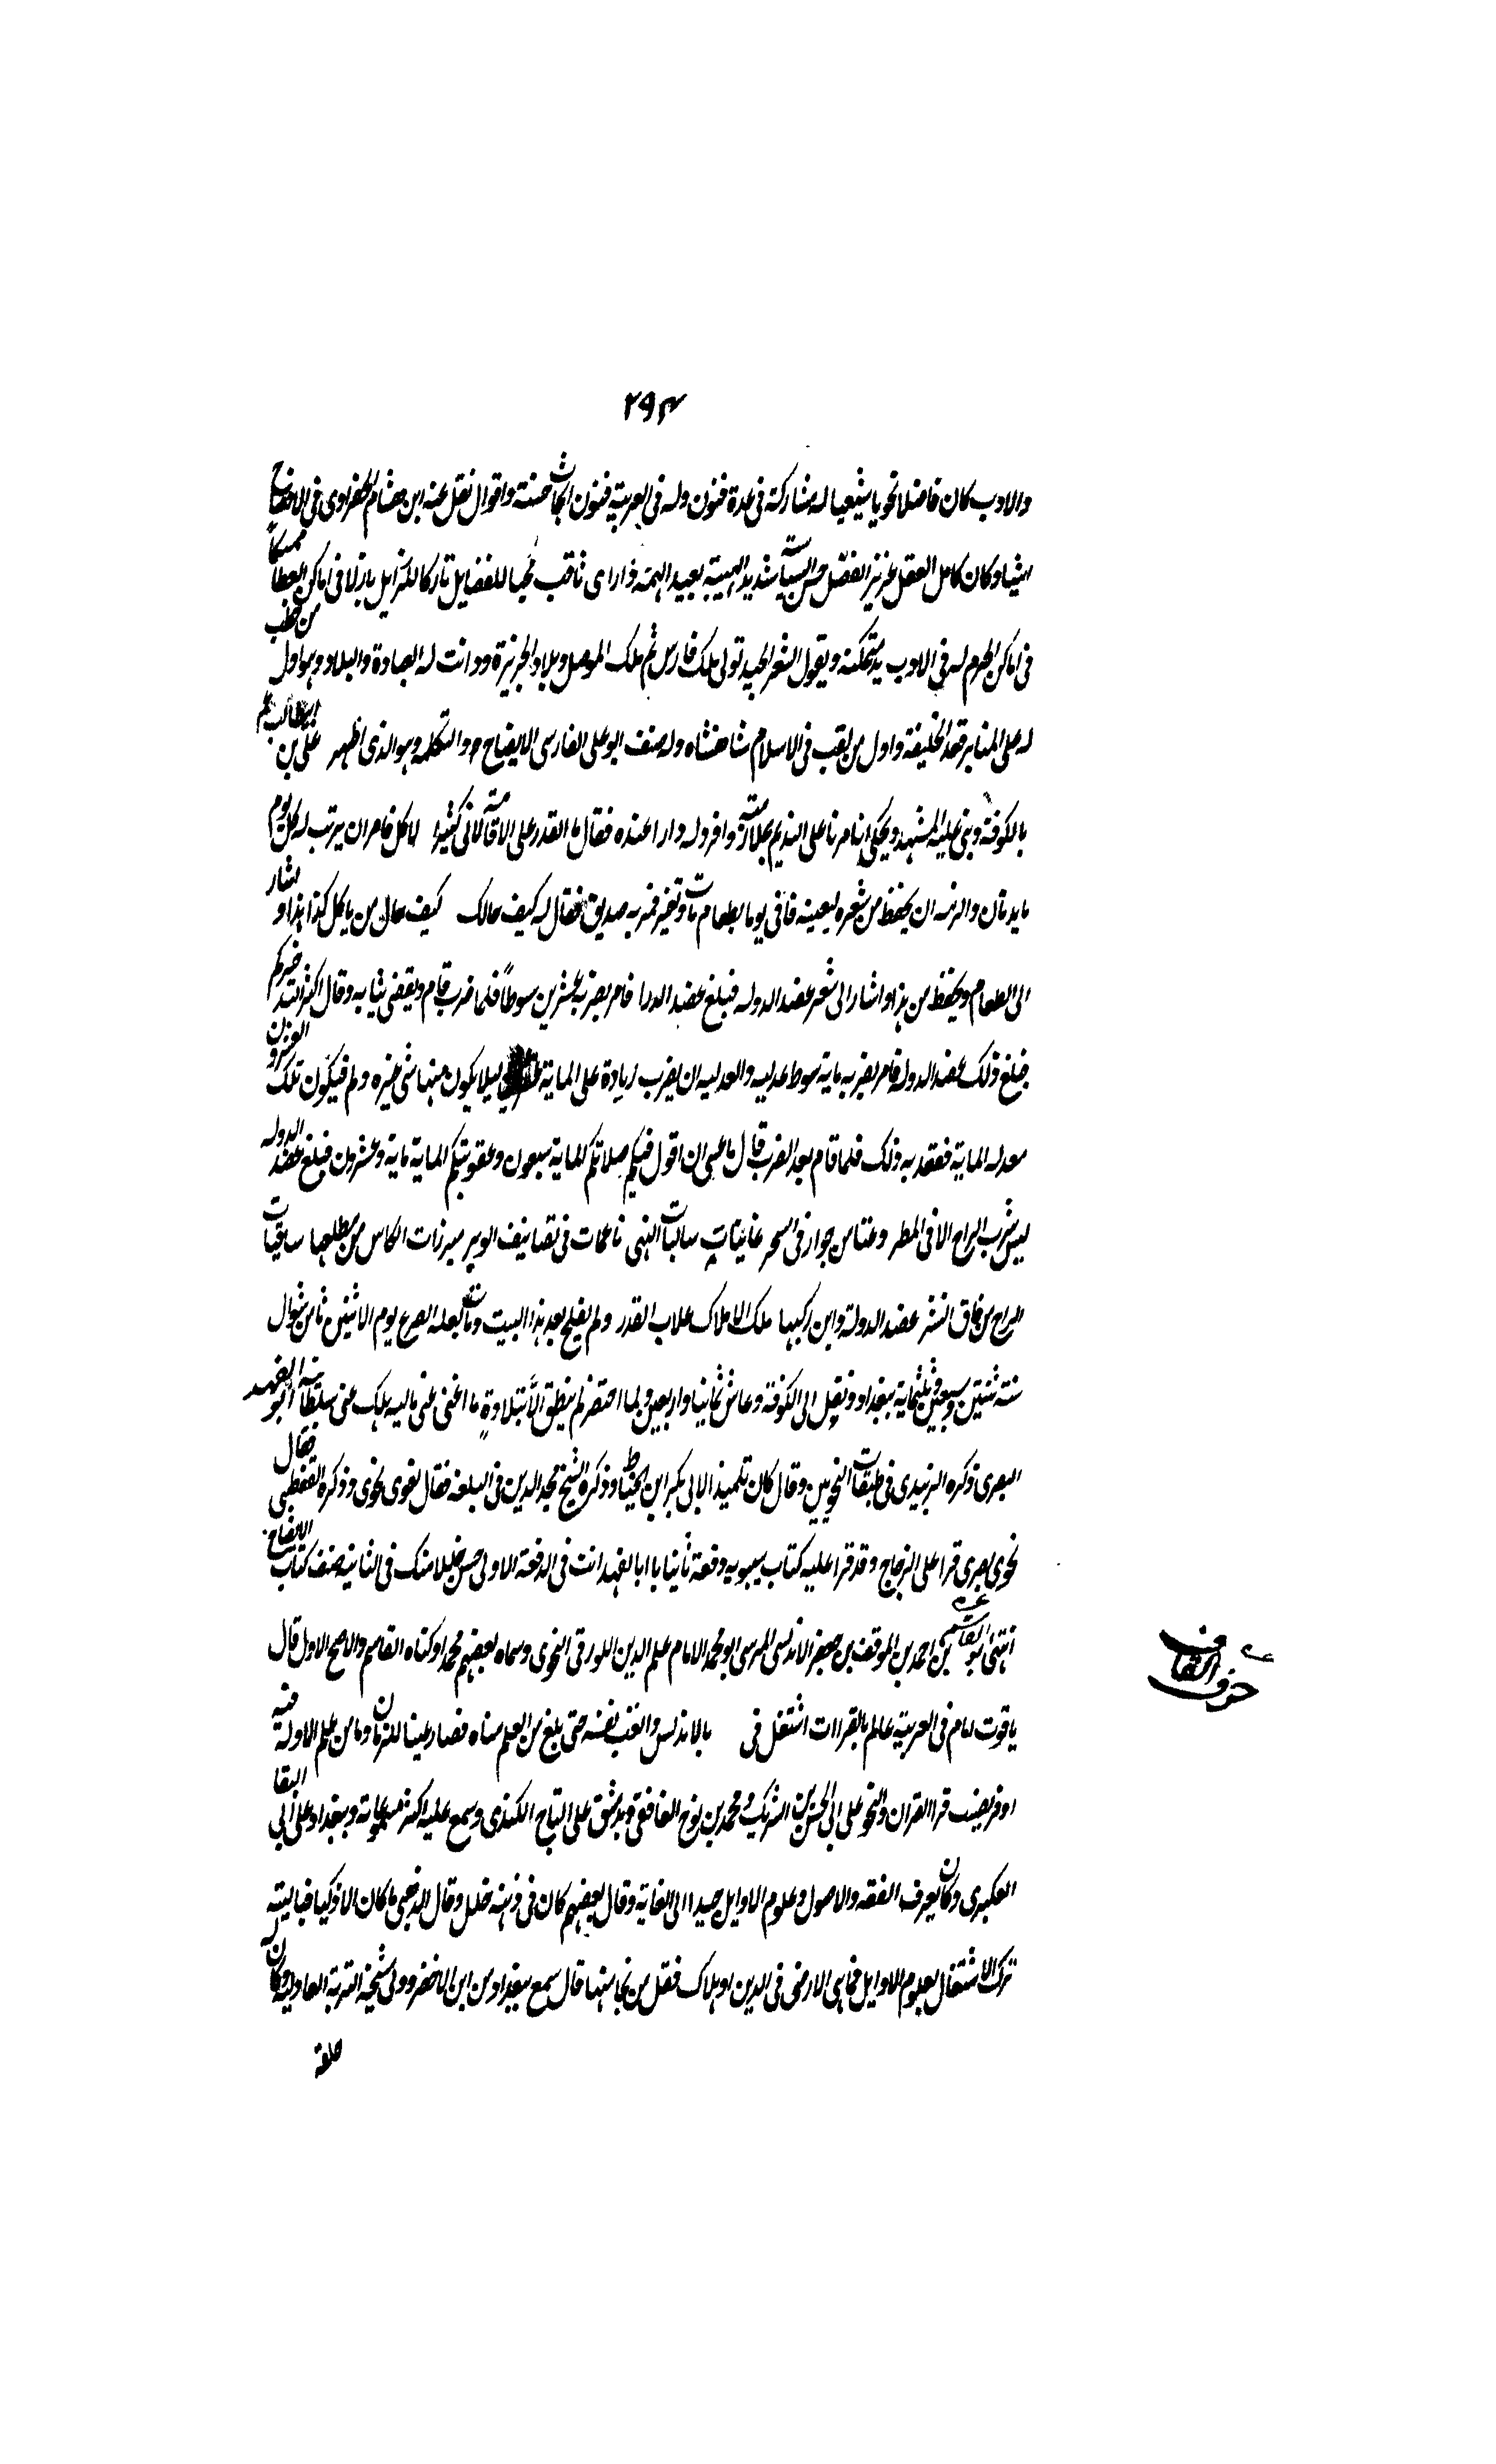 ۲۹۴
والادب كان فاضلا نحويا شيعيا له مشاركة فى عدة فنون وله فى العربية فنون ابحاث حسنة واقوال نقل عنه ابن هشام الخضراوى فى الافصاح
اشيا وكان كامل العقل غزير الفضل حسن السياسة شديد الهيبة بعيد الهمة ذا راى ثاقب محبا للفضايل تاركا للرزايل باذلا فى اماكن العطا ممسكا
فى اماكن الحزم له فى الادب يد متمكنة ويقول الشعر الجيد تولى ملك فارس ثم ملك الموصل وبلاد الجزيرة ودانت له العباد والبلاد وهو اول من خطب
له على المنابر بعد الخليفة واول من لقب فى الاسلام شاهنشاه وله صنف ابو على الفارسى الايضاح والتكلمه وهو الذى اظهر على بن ابيطالب
بالكوفة وبنى عليه المشهد ويحكى انه امر ناعلى النديم وافر وله دارا عنده فقال ما القدر على الاقامة لانى كثير الاكل فامر ان يرتب له كل يوم
مايدتان والزمه ان يحفظ من شعره بعينه فاتى يوما بطعام بات وتغير فمر به صديق فقال له كيف حالك كيف حال من ياكل كذا هذا واشار
الى الطعام ويحفظ من هذا واشار الى شعر عضد الدوله فبلغ عضد الدو فامر بضربه عشرين سوطا فلما ضرب قام ونفض ثيابه وقال اكثر الله خيركم
فبلغ ذلك عضد الدولة فامر بضربه ماية سوط عدليه والعدليه ان يضرب زيادة على الماية ليلا يكون منها شى غيره ولم فيكون تلك العشرون
معدله الماية ففعل به ذلك فلما قام بعد الضرب قال ما عسى ان اقول فيكم صلاتكم الماية سبعون وعقوبتكم الماية ماية وعشرون فبلغ عضد الدوله
ليس شرب الراح الا فى المطر وغنا من جوار فى السحر غانيات سالبات النهى ناعمات فى تضاعيف الوتر مبرزات الكاس من مطلعها ساقيات
الراح من فاق البشر عضد الدولة وابن ركنها ملك الاملاك غلاب القدر ولم يفلح بعد هذا البيت ومات بعلة الصرع يوم الاثنين ثامن شوال
سنة ثنتين وسبعين وثلثماية ببغداد ونقل الى الكوفة وعاش ثمانيا واربعين ولما احتضر لم ينطق الا بتلاوة ما اغنى عنى ماليه هلك عنى سلطانيه ابو الفهد
البصرى ذكره الزبيدى فى طبقات النحويين وقال كان تلميذ الابى بكر ابن الخياط وذكره الشيخ مجد الدين فى البلغه فقال لغوى نحوى وذكره القفطى فقال
نحوى بصرى قرا على الزجاج وقد قرا عليه كتاب سيبويه دفعة ثانيا يا ابا الفهد انت فى الدفعة الاولى احسن حالا منك فى الثانية صنف كتاب الايضاح
انتهى القاسم بن احمد بن الموفق بن جعفر الاندلسى المرسى ابو محمد الامام علم الدين اللورقى النحوى وسماه بعضهم محمدا وكناه ابا القاسم والاصح الاول قال
ياقوت امام فى العربية عالم بالقراات اشتغل فى بالاندلس واتعب نفسه حتى بلغ من العلم مناه فصار عينا للزمان وما من علم الا وله فيه
اوفر نصيب قرا القران والنحو على ابى الحسن بن الشريك ومحمد بن نوح الغافقى وبدمشق على التاج الكندى وسمع عليه اكثر مسموعاته وببغداد على ابى البقا
العكبرى وكان يعرف الفقه والاصول وعلوم الاوايل جيدا الى الغاية وقال بعضهم كان فى ذهنه خلل وقال الذهبى ما كان الا ذكيا فيا ليته
ترك الاشتغال بعلوم الاوايل فما هى الا مرض فى الدين او هلاك فقل من نجا منها قال سمع ببغداد من ابن الاخضر وولى مشيخة التربة العادلية وكان له
حلقة
حرف القاف